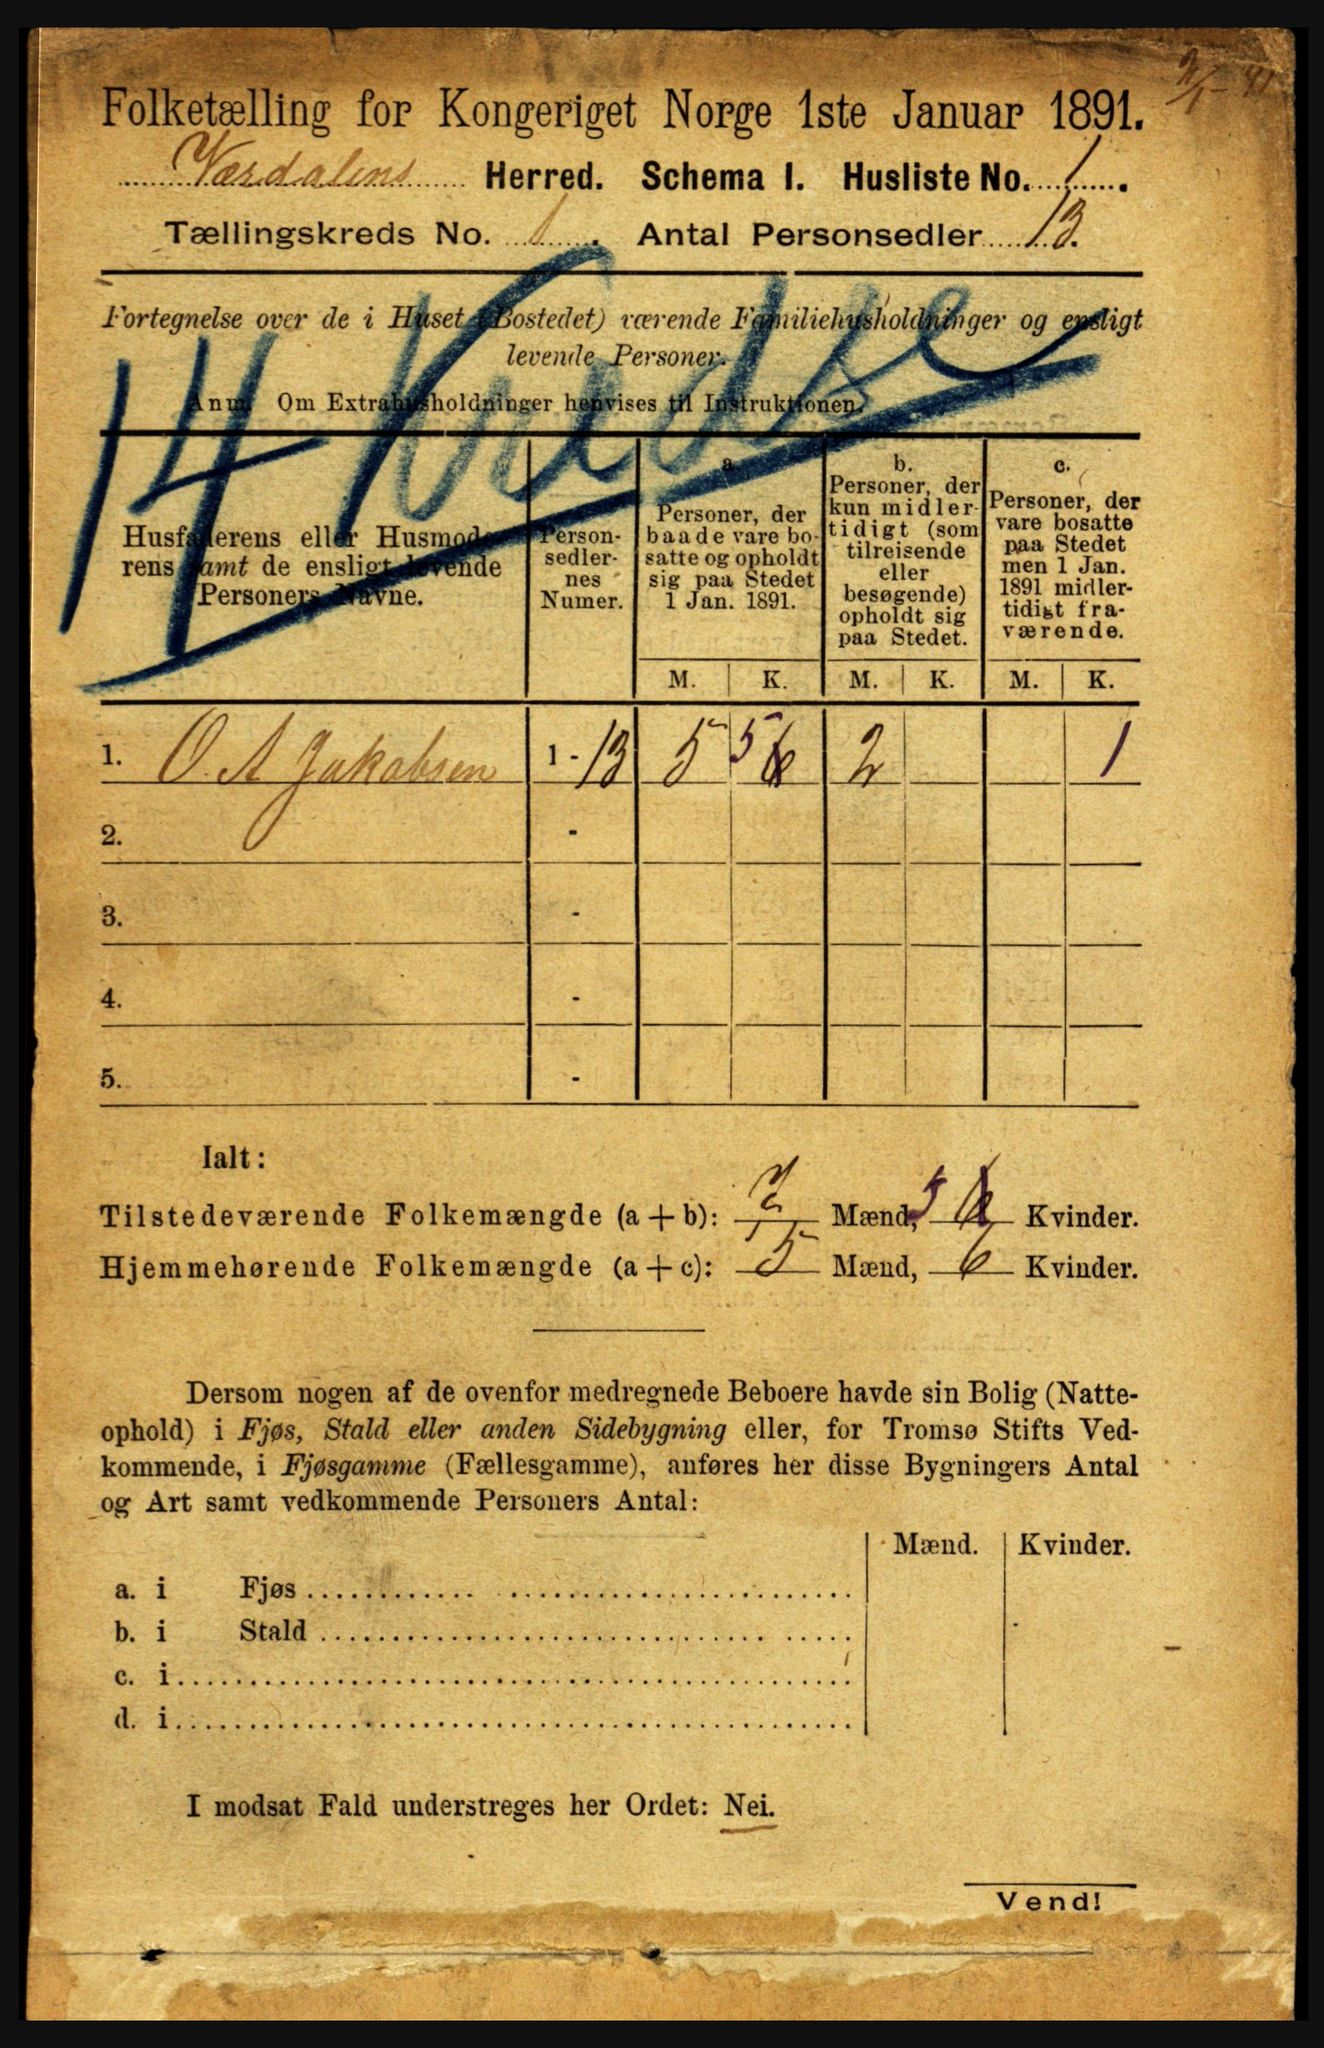 2/1-91
Folketælling for Kongeriget Norge 1ste Januar 1891.
Værdalens Herred. Schema I. Husliste No. 1.
Tællingskreds No. 1. Antal Personsedler 13.
14 Kredse
Fortegnelse over de i Huset (Bostedet) værende Familiehusholdninger og ensligt
levende Personer.
Anm. Om Extrahusholdninger henvises til Instruktionen.
Husfaderens eller Husmode-
rens samt de ensligt levende
Personers Navne.
Person-
sedler-
nes
Numer.
a.
Personer, der
baade vare bo-
satte og opholdt
sig paa Stedet
1 Jan. 1891.
b.
Personer, der
kun midler-
tidigt (som
tilreisende
eller
besøgende)
opholdt sig
paa Stedet.
c.
Personer, der
vare bosatte
paa Stedet
men 1 Jan.
1891 midler-
tidigt fra-
værende.
M. K. M. K. M. K.
1. O. A Jakobsen 1 - 13 5 5 6 2 1
2. -
3. -
4. -
5. -
Ialt:
Tilstedeværende Folkemængde (a + b): 7 Mænd, 5 6 Kvinder.
Hjemmehørende Folkemængde (a + c): 5 Mænd, 6 Kvinder.
Dersom nogen af de ovenfor medregnede Beboere havde sin Bolig (Natte-
ophold) i Fjøs, Stald eller anden Sidebygning eller, for Tromsø Stifts Ved-
kommende, i Fjøsgamme (Fællesgamme), anføres her disse Bygningers Antal
og Art samt vedkommende Personers Antal:
Mænd. Kvinder.
a. i Fjøs
b. i Stald
c. i
d. i
I modsat Fald understreges her Ordet: Nei.
Vend!